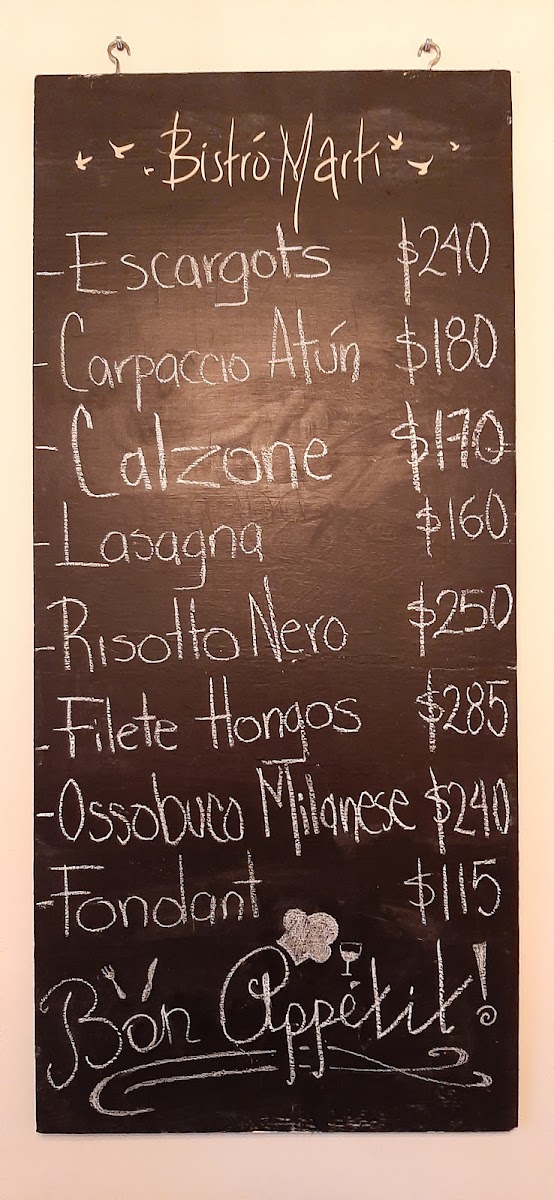 Bistró Martí
- Escargots $240
- Carpaccio Atún $180
- Calzone $170
- Lasagna $160
- Risotto Nero $250
- Filete Hongos $285
- Ossobuco Milanese $240
- Fondant $115
Bon Appétit!